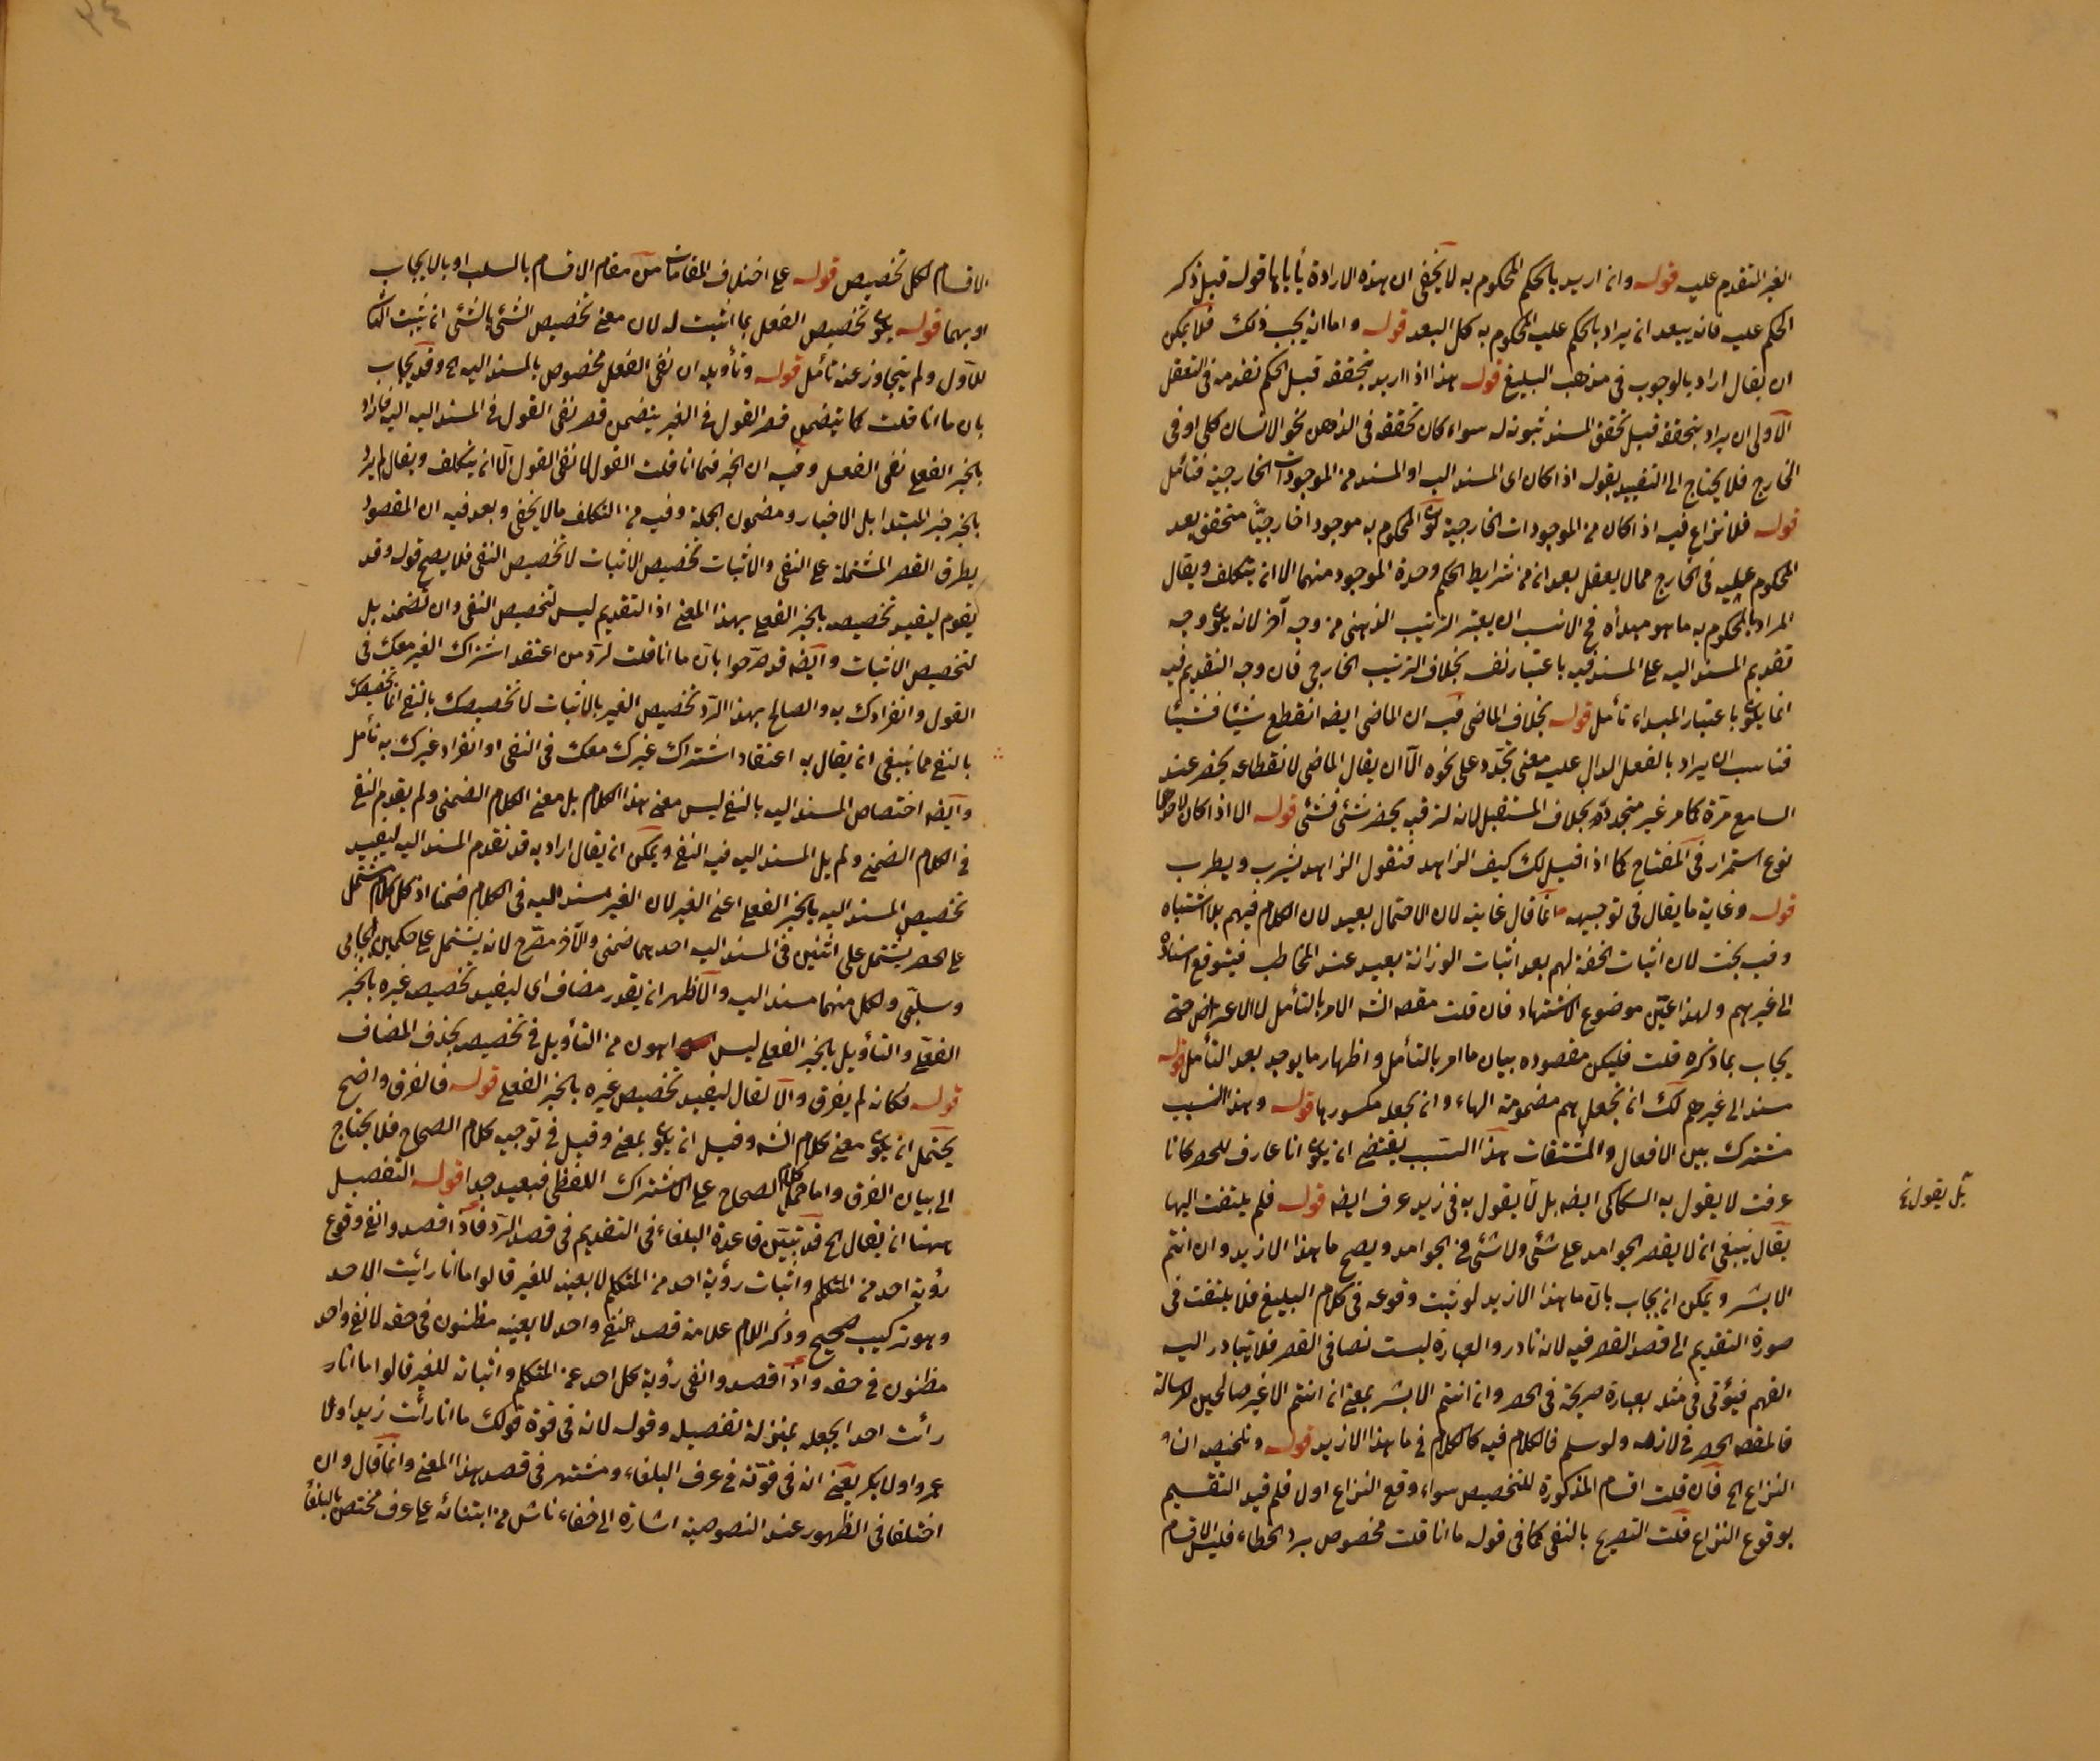 الغير المتقدم عليه قوله وان اريد بالحكم المحكوم به لا يخفى ان هذه الارادة يأباها قوله قبل ذكر
الحكم عليه فانه يبعد ان يراد بالحكم عليه المحكوم به كل البعد قوله واما انه يجب ذلك فلا يمكن
ان يقال اراد بالوجوب في مذهب البليغ قوله هذا اذا اريد بتحققه قبل الحكم تقدمه في التعقل
الاولى ان يراد بتحققه قبل تحقق المسند ثبوته له سواء كان تحققه في الذهن نحو الانسان كلي او في
الخارج فلا يحتاج الى التقييد بقوله اذا كان اى المسند اليه او المسند من الموجودات الخارجية فتأمل
قوله فلا نزاع فيه اذا كان من الموجودات الخارجية كون المحكوم به موجودا خارجيّا متحقق بعد
المحكوم عليه في الخارج مما لا يعقل بعد انه من شرايط الحكم وحدة الموجود منهما الا ان يتكلف ويقال
المراد بالمحكوم به ما هو مبدأه فح الانسب ان يعتبر الترتيب الذهني من وجه آخر لانه يكون وجه
تقديم المسند اليه على المسند فيه باعتبار نفسه بخلاف الترتيب الخارجي فان وجه التقديم فيه
انما يكون باعتبار المبداء تأمل قوله بخلاف الماضي فيه ان الماضى ايضا انقطع شيئا فشيئا
فناسب ان يراد بالفعل الدال عليه معنى تجدد على نحوه الّا ان يقال الماضى لانقطاعه يحضر عند
السامع مرّة كامر غير متجددة بخلاف المستقبل لانه لترقبه يحضر شئ فشئ قوله الا اذا كان
نوع استمرار في المفتاح كما اذا قيل لك كيف الزاهد فتقول الزاهد يشرب ويطرب
قوله وغاية ما يقال في توجيهه انما قال غايته لان الاحتمال بعيد لان الكلام فيهم بلا اشتباه
وفيه بحث لان اثبات الخفة لهم بعد اثبات الوزانة بعيد عند المخاطب فيتوقع اسناده
الى غيرهم ولهذا عيّن موضوع الاشتهاد فان قلت مقصد الشه الامر بالتأمل لا الاعراض حتى
يجاب بما ذكره قلت فليكن مقصوده بيان ما امر بالتأمل واظهار ما يوجد بعد التأمل قوله
مسند الى غيرهم لك ان تجعل هم مضمومة الهاء وان تجعله مكسورها قوله وهذا السبب
مشترك بين الافعال والمشتقات هذا السبب يقتضى ان يكون انا عارف للحصر كانا
عرفت لا يقول به السكاكى ايضا بل لا يقول به في زيد عرف ايضا قوله فلم يلتفت اليها
يقال ينبغي ان لا يقصر الجوامد على شئ ولا شئ في الجوامد ويصح ما هذا الا زيد وان انتم
الا بشر ويمكن ان يجاب بان ما هذا الا زيد لو ثبت وقوعه في كلام البليغ فلا يلتفت في
صورة التقديم الى قصد القصر فيه لانه نادر والعبارة ليست نصا في القصر فلا يتبادر اليه
الفهم فيؤتى في مثله بعبارة صريحة في الحصر وان انتم الا بشر بمعنى ان انتم الا غير صالحين للرسالة
فالمقصد الحصر في لازمه ولو سلم فالكلام فيه كالكلام في ما هذا الا زيد قوله وتلخيص ان
النزاع الخ فان قلت اقسام المذكورة للتخصيص سواء وقع النزاع اولا فلم قيد التقسيم
بوقوع النزاع قلت التصريح بالنفى كما في قوله ما انا قلت مخصوص برد الخطاء فليس الاقسام
بل يقول نخ
الاقسام لكل تخصيص قوله على اختلاف المقامات من مقام الاقسام بالسلب او بالايجاب
او بهما قوله يكون تخصيص الفعل بما اثبت له لان معنى تخصيص الشئ بالشئ ان يثبت الثانى
للاول ولم يتجاوز عنه تأمل قوله وتأويله ان نفى الفعل مخصوص بالمسند اليه الخ وقد يجاب
بان ما انا قلت كما يتضمن قصر القول في الغير يتضمن قصر نفى القول في المسند اليه فاراد
بالخبر الفعلى نفى الفعل وفيه ان الخبر فيما انا قلت القول لا نفى القول الّا ان يتكلف ويقال لم يرد
بالخبر خبر المبتدا بل الاخبار ومضمون الجملة وفيه من التكلف ما لا يخفى وبعد فيه ان المقصود
بطرق القصر المشتملة على النفى والاثبات تخصيص الاثبات لا تخصيص النفى فلا يصح قوله وقد
يقوم ليفيد تخصيصه بالخبر الفعلى بهذا المعنى اذ التقديم ليس لتخصيص النفى وان تضمنه بل
لتخصيص الاثبات وايضا قد صرّحوا بان ما انا قلت لردّ من اعتقد اشتراك الغير معك في
القول وانفرادك به والصالح بهذا الرد تخصيص الغير بالاثبات لا تخصيصك بالنفى انما تخصيصك
بالنفى مما ينبغي ان يقال به اعتقاد اشتراك غيرك معك في النفى او انفراد غيرك به تأمل
وايضا اختصاص المسند اليه بالنفى ليس معنى هذا الكلام بل معنى الكلام الضمني ولم يقدم النفى
في الكلام الضمنى ولم يل المسند اليه فيه النفى ويمكن ان يقال اراد به قد تقدم المسند اليه ليفيد
تخصيص المسند اليه بالخبر الفعلى اعنى الغير لان الغير مسند اليه في الكلام ضمنا اذ كل كلام مشتمل
على الحصر يشتمل على اثنين في المسند اليه احدهما ضمنى والآخر مصرّح لانه يشتمل على حكمين ايجابي
وسلبّي ولكل منهما مسند اليه والاظهر ان يقدر مضاف اى ليفيد تخصيص غيره بالخبر
الفعّلي والتأويل بالخبر الفعلى ليس اهون من التأويل في تخصيصه بحذف المضاف
قوله فكانه لم يفرق والّا لقال ليفيد تخصيص غيره بالخبر الفعلى قوله فالفرق واضح
يحتمل ان يكون معنى كلام الشه وقيل ان يكون بمعنى وقيل في توجيه كلام الصحاح فلا يحتاج
الى بيان الفرق واما حمل كلام الصحاح على الاشتراك اللفظى فبعيد جدا قوله التفصيل
ههنا ان يقال الخ قد تبيّن قاعدة البلغاء في التقديم في قصد الرّد فاذا قصدوا نفى وقوع
رؤية احد من المتكلم واثبات رؤية احد من المتكلم لا بعينه للغير قالوا ما انا رأيت الاحد
وهو تركيب صحيح وذكر اللام علامة قصد نفى واحد لا بعينه مظنون في حقه لا نفى واحد
مظنون في حقه واذا قصدوا نفى رؤية كل احد عن المتكلم واثباته للغير قالوا ما انا
رأت احد ايجعله بمنزلة تفصيله وقوله لانه في قوة قولك ما انا رأت زيدا ولا
عمروا ولا بكر يعنى انه في قوّته في عرف البلغاء ومشتهر في قصد هذا المعنى وانما قال وان
اختلفا في الظهور عند النصوصية اشارة الى خفاء ناش من ابتنائه على عرف مختص بالبلغاء